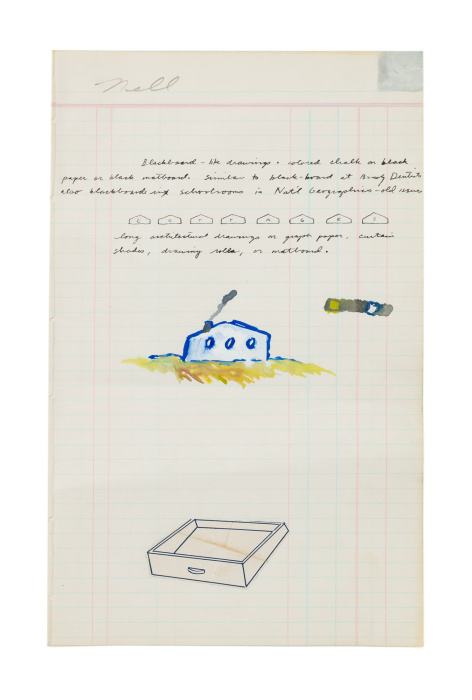 Nell
Blackboard-like drawings. colored chalk on black
paper or black matboard. Similar to black-board at
also blackboards in schoolrooms in Nat'l Geographics-old issues
long architectural drawings on graph paper, curtain
shades, drawing rolls, or matboard.